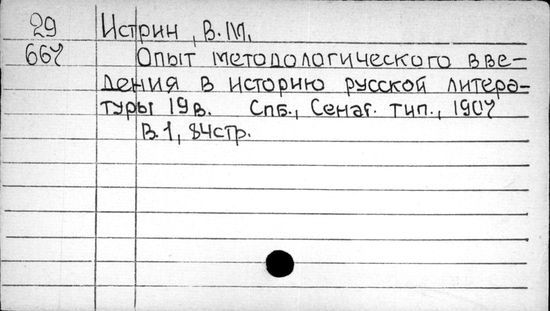 29 Истрин, В.М.
667 Опыт методологического вве-
дения в историю русской литера-
туры 19в. Спб., Сенат. тип., 1907
В.1, 84стр.